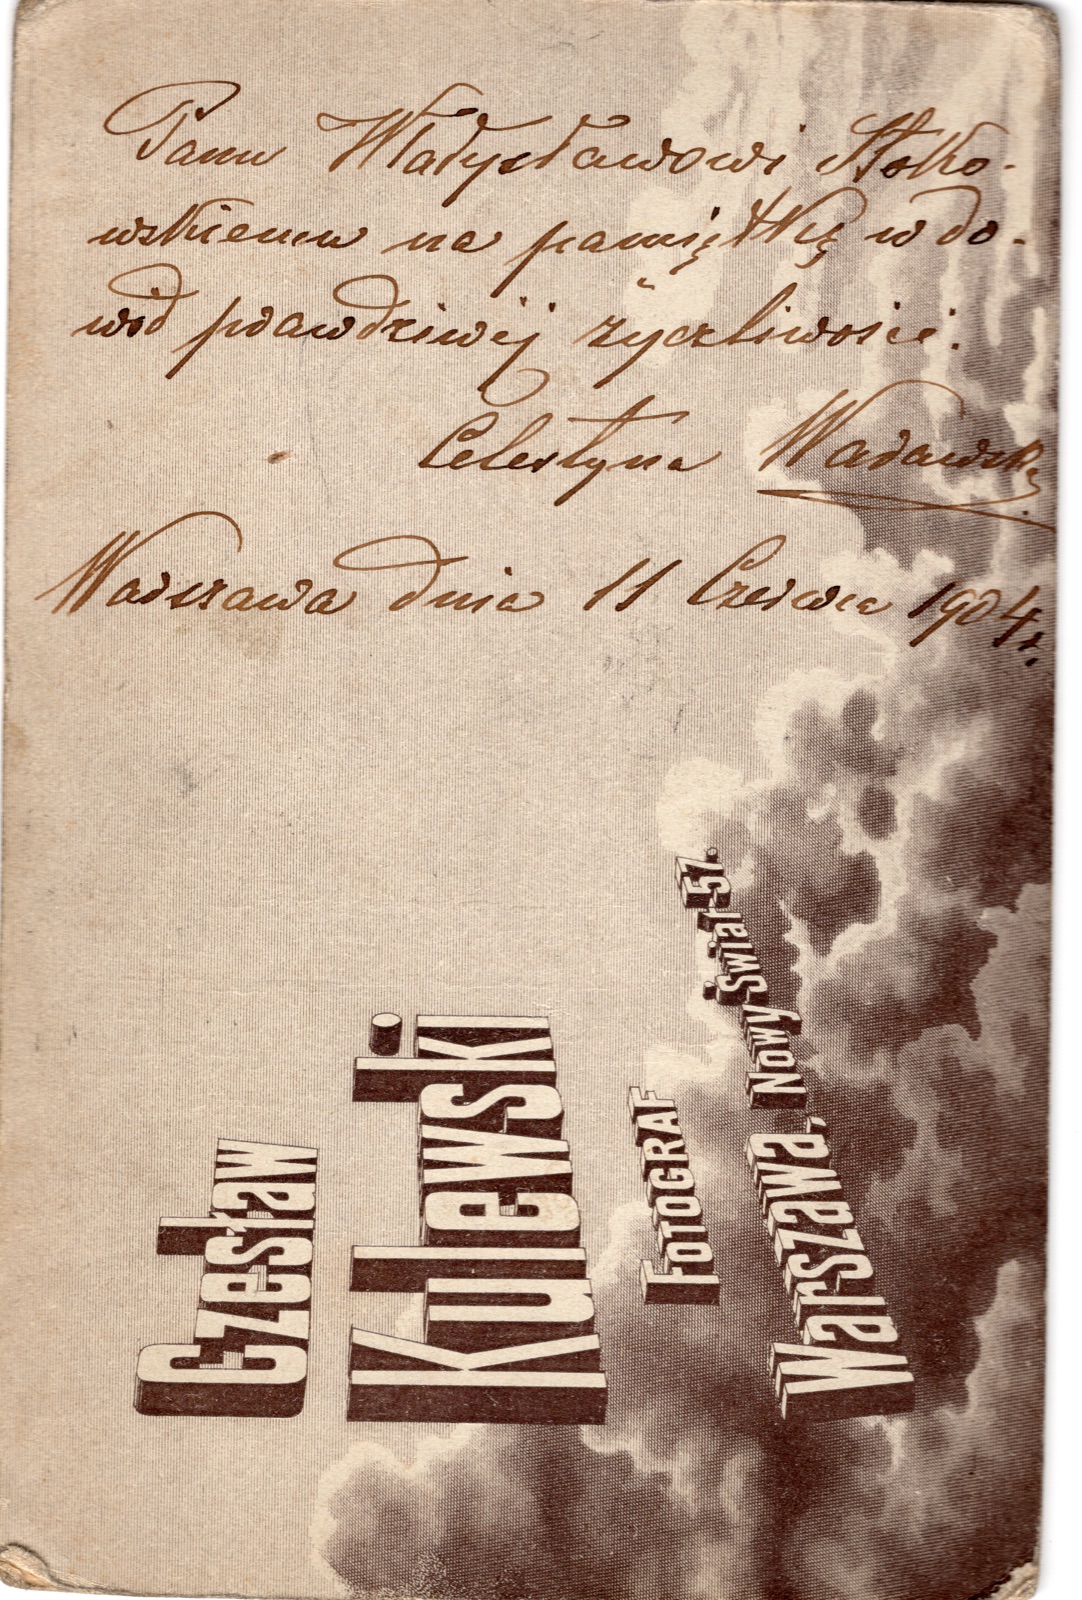 Panu Władysławowi Stoko-
wskiemu na pamiątkę w do-
wód prawdziwéj życzliwości.
Celestyna
Warszawa dnia 11 Czerwca 1904 r.
Czesław
Kulewski
Fotograf
Warszawa, Nowy-Świat 57.